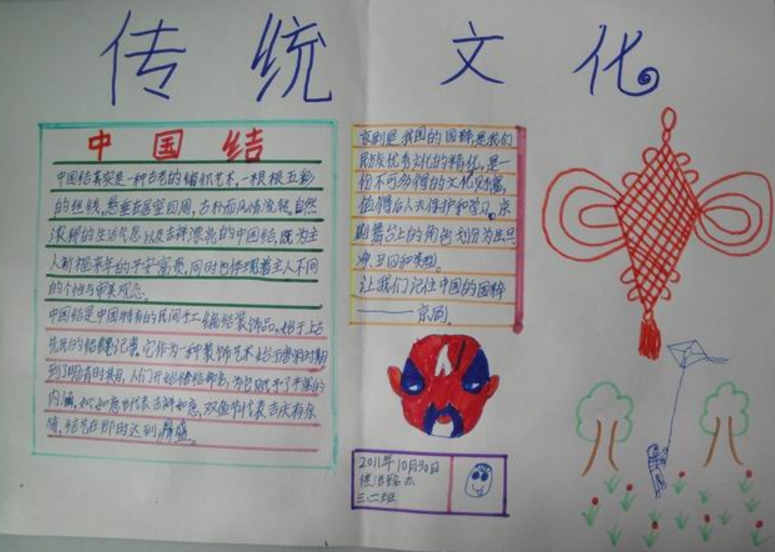 传统文化
中国结
中国结其实是一种古老的编织艺术,一根根五彩
的丝线,悬垂在居室四周,古朴而风情流转。自然
浓郁的生活气息以及吉祥漂亮的中国结,既为主
人祈福来年的平安富贵,同时也体现着主人不同
的个性与审美观念。
中国结是中国特有的民间手工编结装饰品,始于上古
先民的结绳记事。它作为一种装饰艺术始于唐宋时期
到了明清时期,人们开始给结命名,为它赋予了丰富的
内涵,如如意节代表吉祥如意,双鱼节代表吉庆有余
等,结艺在那时达到鼎盛。
京剧是我国的国粹,是我们
民族优秀文化的精化,是一
份不可多得的文化财富,
值得后人去保护和学习。京
剧舞台上的角色划分为生旦
净丑四种类型。
让我们记住中国的国粹
——京剧。
2011年10月30日
三(二)班